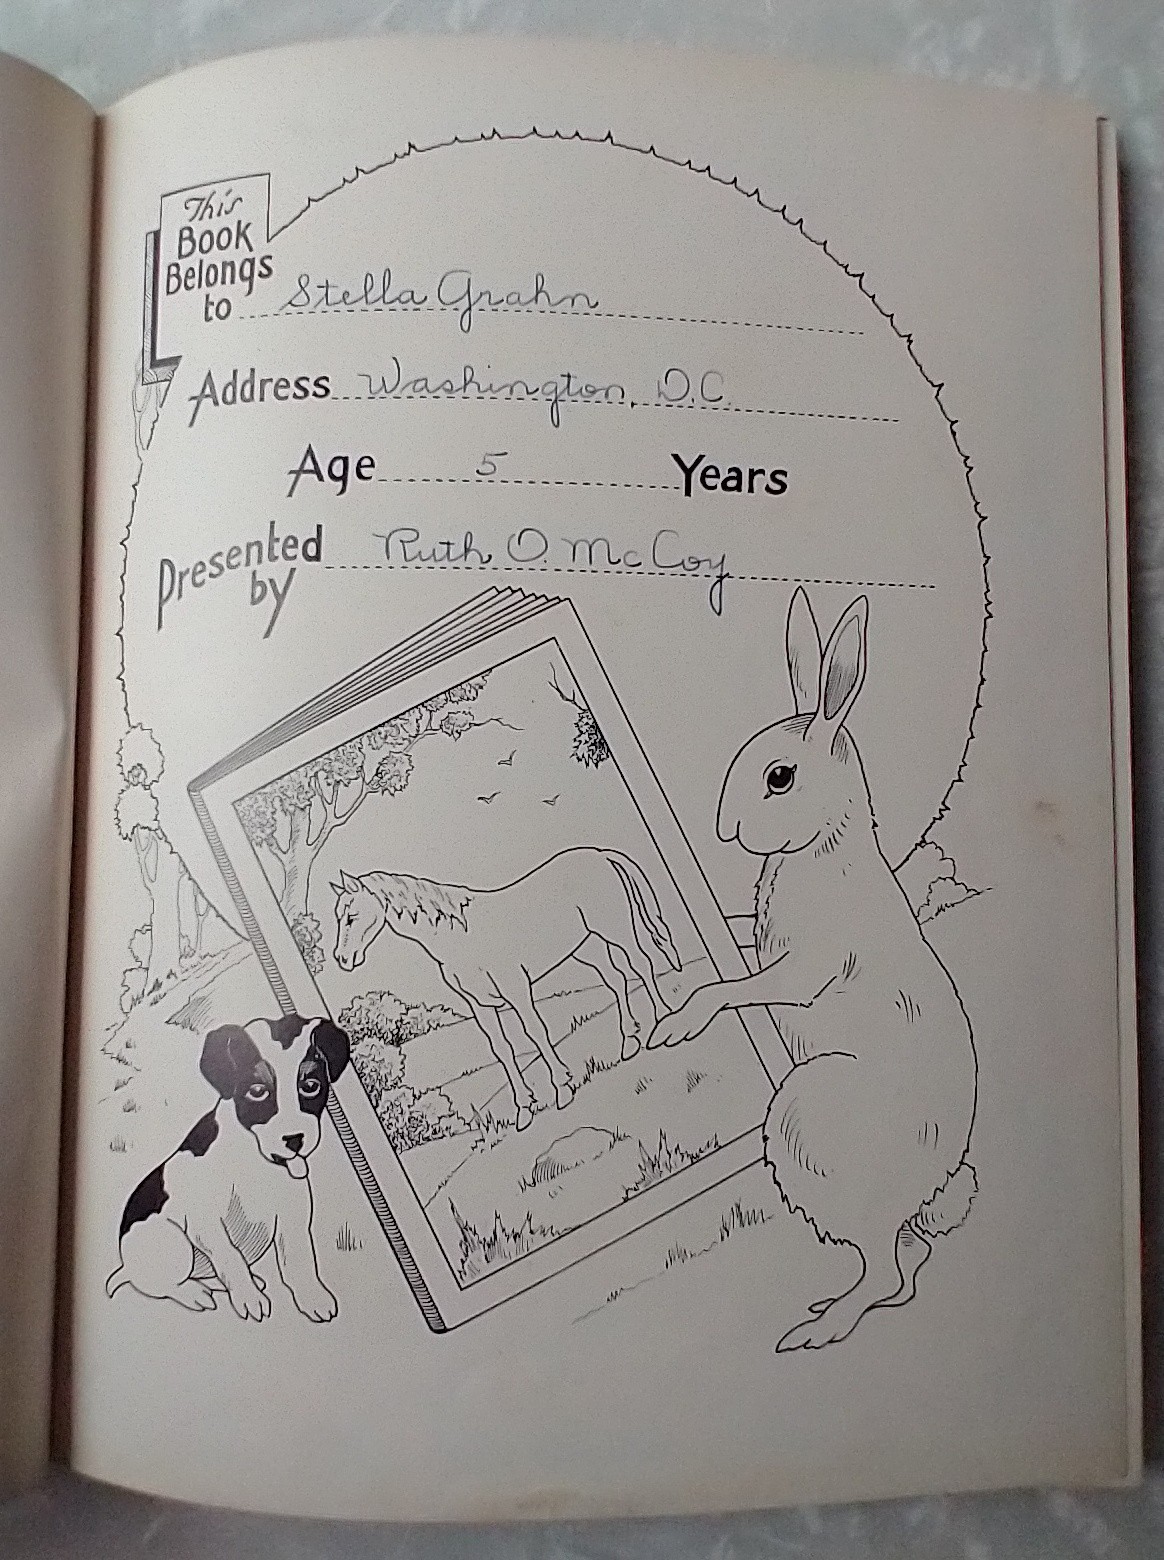 This
Book
Belongs
to Stella Grahn
Address Washington, D.C.
Age 5 Years
Presented
by Ruth O. McCoy